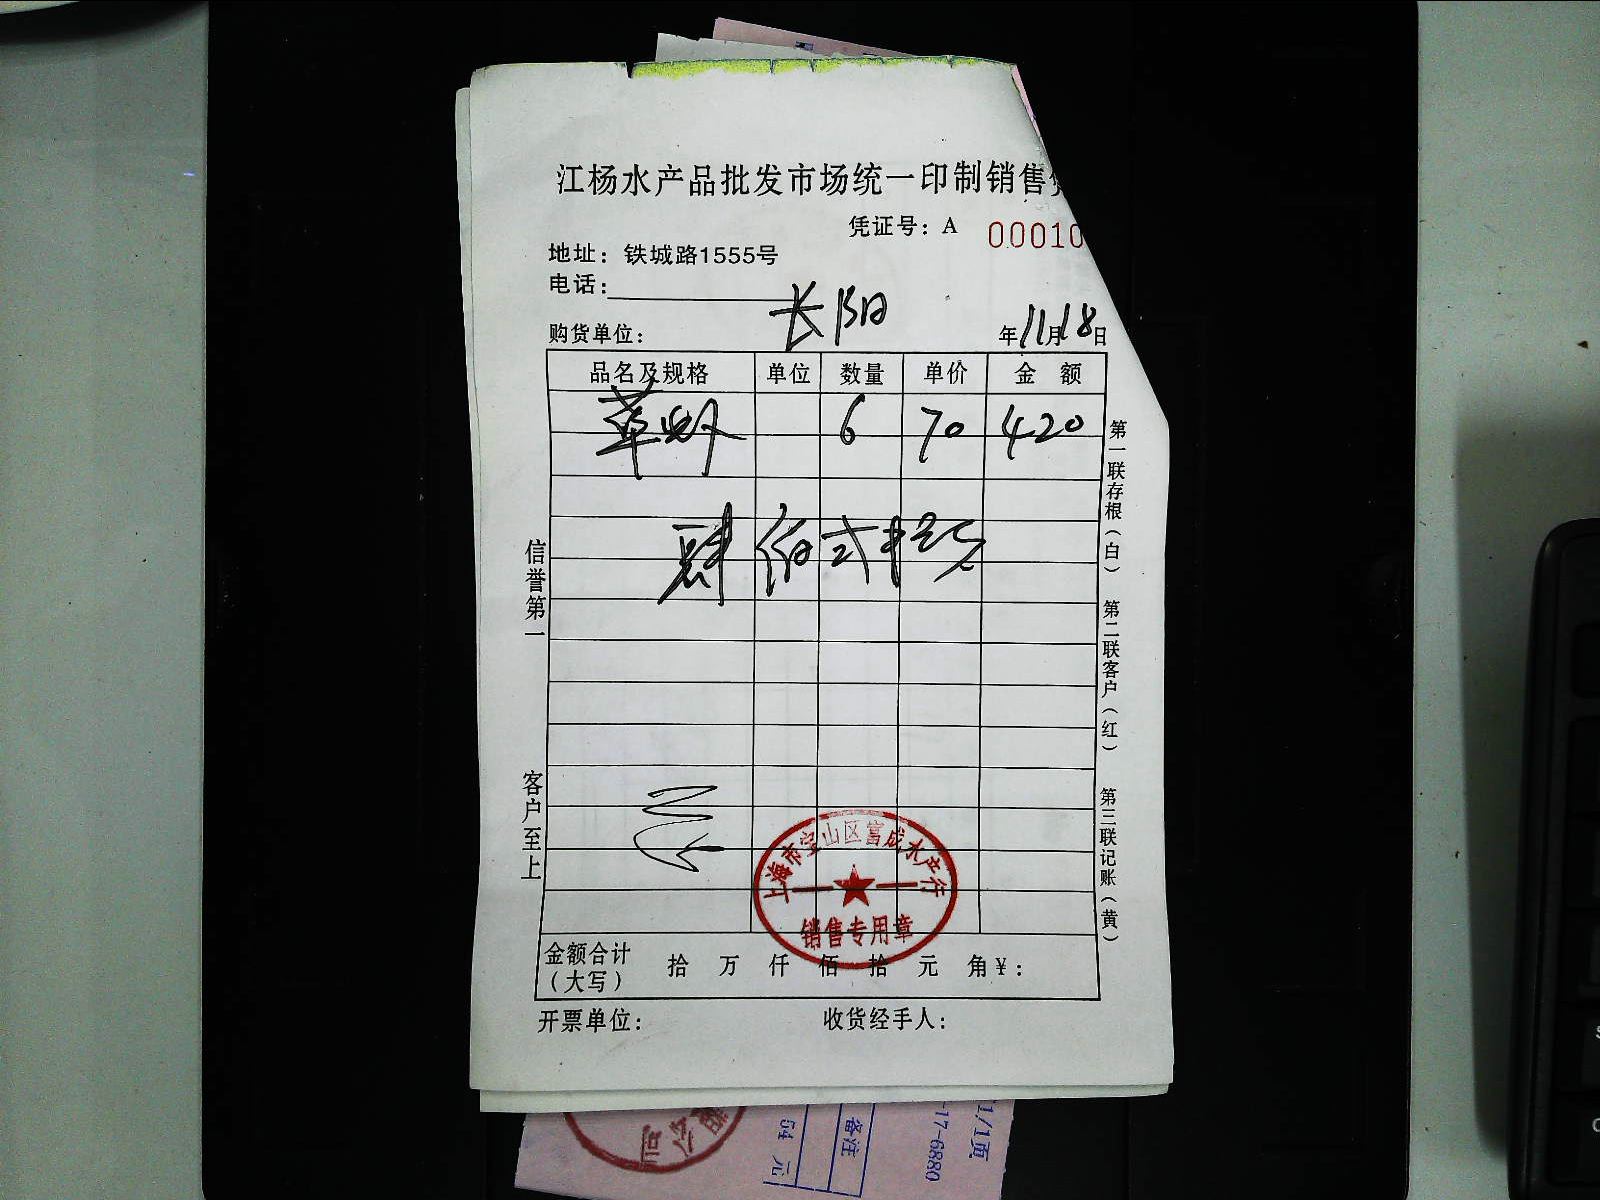 江杨水产品批发市场统一印制销售
凭证号：A 00010
地址：铁城路1555号
电话：
长阳
购货单位：
年11月18日
品名及规格 单位 数量 单价 金额
草虾 6 70 420
肆佰贰拾元
信誉第一
客户至上
第一联存根（白） 第二联客户（红） 第三联记账（黄）
上海市宝山区富成水产行
销售专用章
金额合计 拾 万 仟 佰 拾 元 角¥：
（大写）
开票单位： 收货经手人：
1/1页
-17-6880
备注
54 元